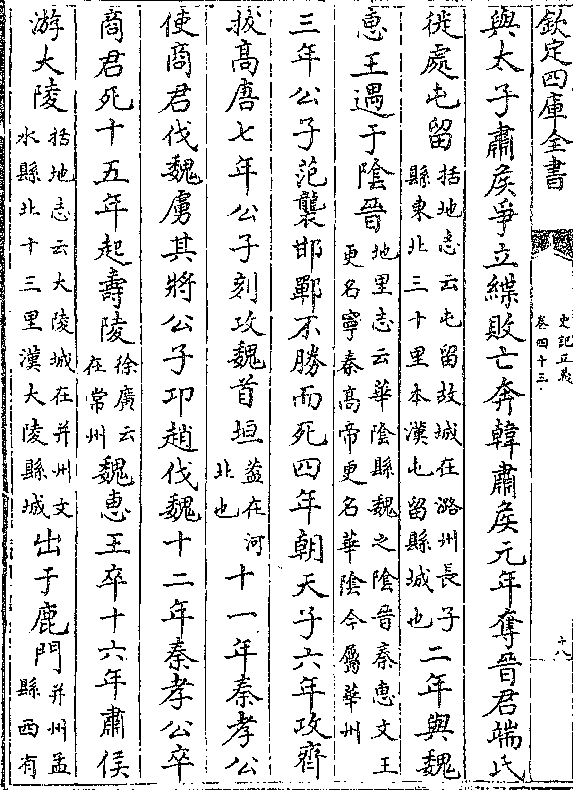 欽定四庫全書
史記正義
卷四十三
十八
與太子肅侯爭立緤敗亡奔韓肅侯元年奪晉君端氏
徙處屯留括地志云屯留故城在潞州長子縣東北三十里本漢屯留縣城也二年與魏
惠王遇于陰晉地里志云華陰縣魏之陰晉秦惠文王更名寧秦高帝更名華陰今屬華州
三年公子范襲邯鄲不勝而死四年朝天子六年攻齊
拔髙唐七年公子刻攻魏首垣蓋在河北也十一年秦孝公
使商君伐魏虜其將公子卬趙伐魏十二年秦孝公卒
商君死十五年起壽陵徐廣云在常州魏惠王卒十六年肅侯
游大陵括地志云大陵城在并州文水縣北十三里漢大陵縣城出于鹿門并州盂縣西有